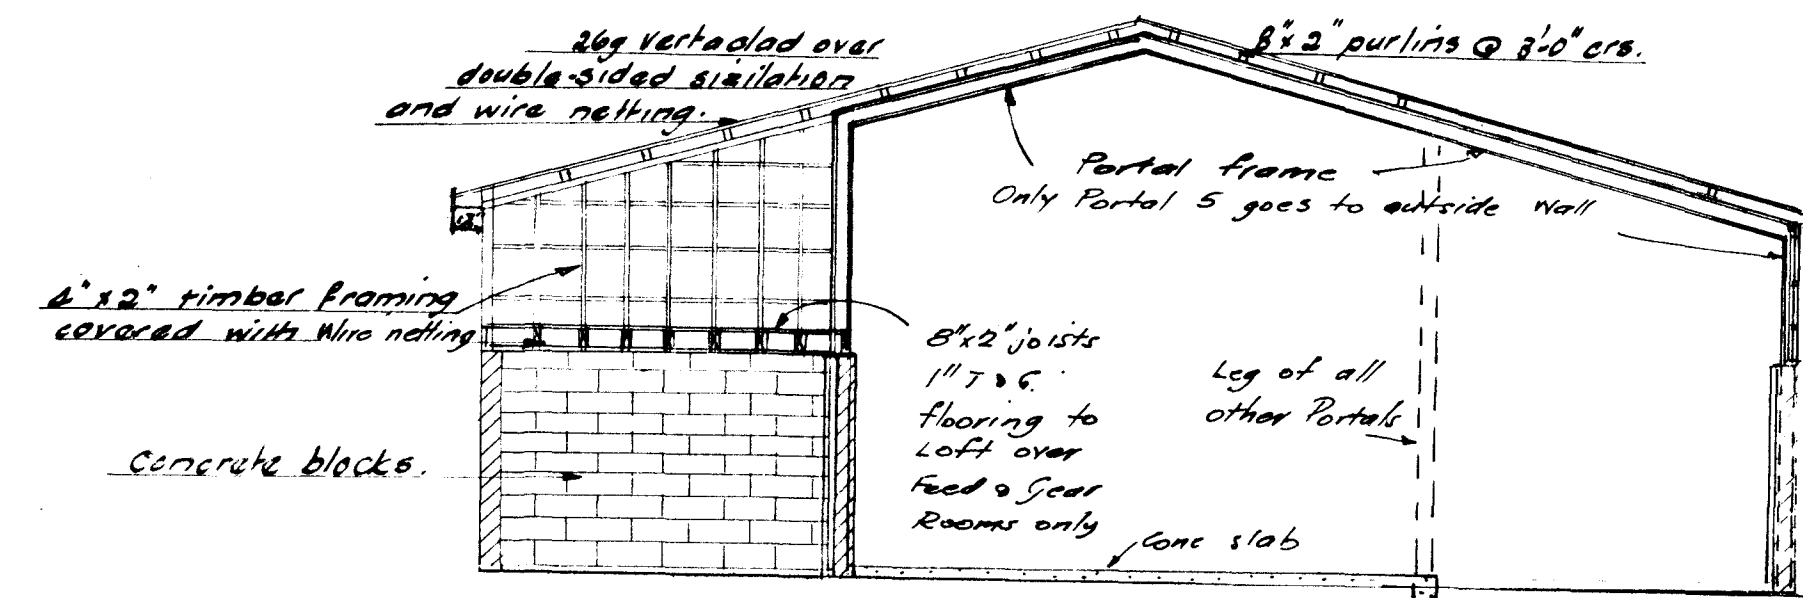 26g Vertaclad over
double-sided sisilation
and wire netting.
8"x 2" purlins @ 3'-0" crs.
Portal frame
Only Portal 5 goes to outside Wall
12"
4" x 2" timber framing
covered with Wire netting
8"x2" joists
1" T & G.
flooring to
Loft over
Feed & Gear
Rooms only
Leg of all
other Portals
Concrete blocks.
Conc slab